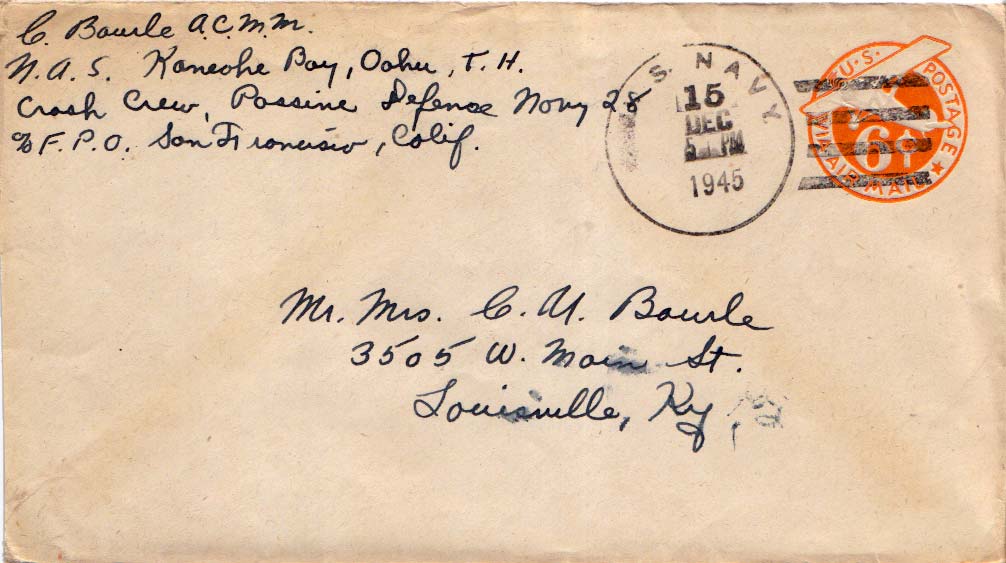 C. Bourle A.C.M.M.
N.A.S. Kaneohe Bay, Oahu, T.H.
Crash Crew, Passive Defense Navy 28
c/o F.P.O. San Francisco, Calif.
U.S. NAVY
15
DEC
5 PM
1945
U.S. POSTAGE
VIA AIR MAIL
6¢
Mr. Mrs. C. U. Bourle
3505 W. Main St.
Louisville, Ky